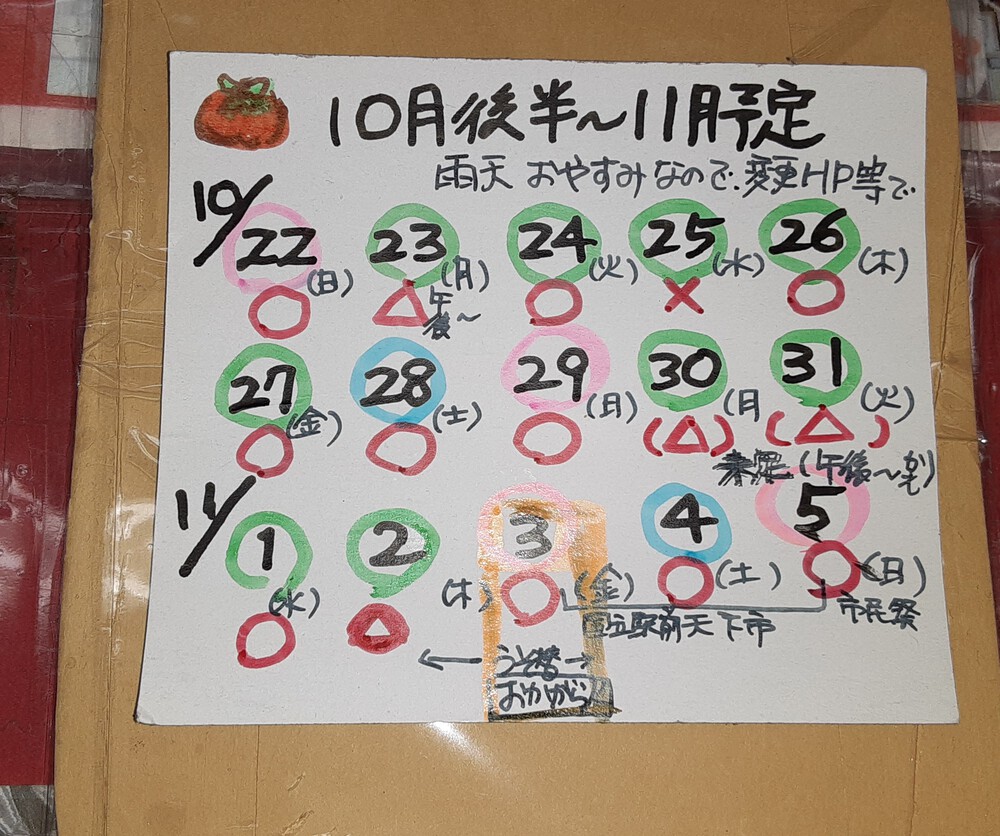 10月後半～11月予定
雨天 おやすみなので、変更HP等で
10/22(日) 23(月) 24(火) 25(水) 26(木)
○ △午後～ ○ × ○
27(金) 28(土) 29(日) 30(月 31(火)
○ ○ ○ (△) (△)
未定(午後～かも)
11/1(水) 2(木) 3(金) 4(土) 5(日)
○ △ ○ ○ ○
国立駅前天下市 市民祭
← うそ替 →
おかがら